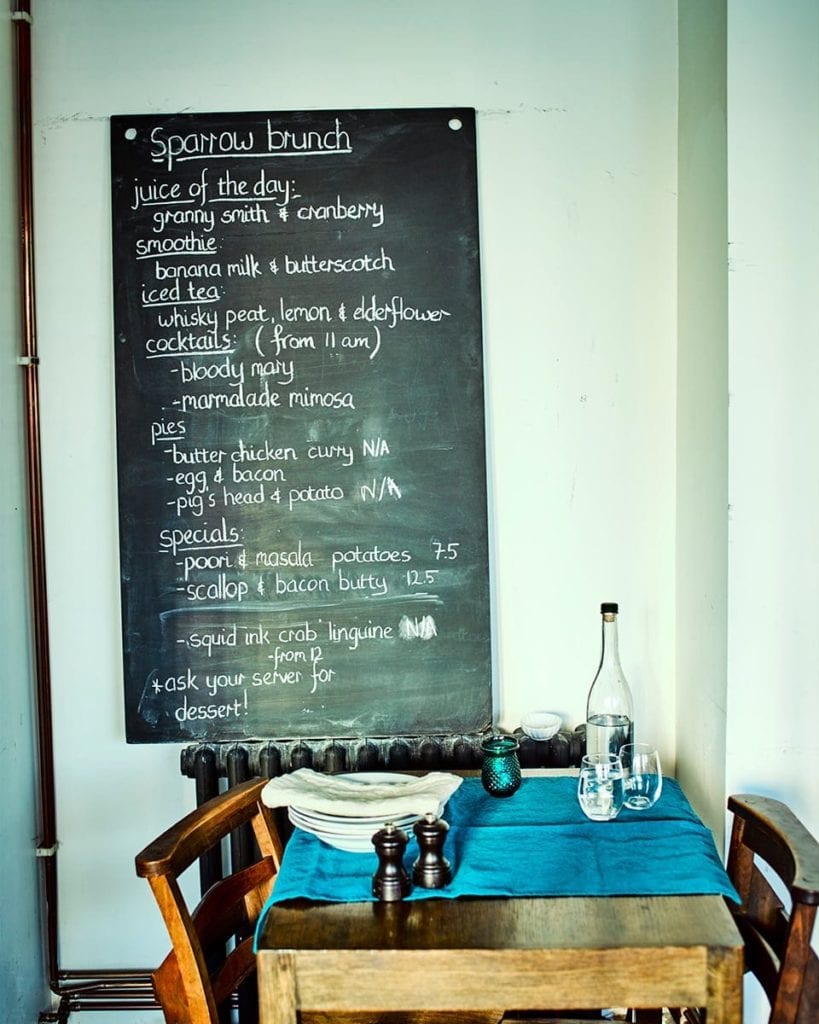 Sparrow brunch
juice of the day:
granny smith & cranberry
smoothie:
banana milk & butterscotch
iced tea:
whisky peat, lemon & elderflower
cocktails: (from 11 am)
-bloody mary
-marmalade mimosa
pies
-butter chicken curry N/A
-egg & bacon
-pig's head & potato N/A
specials:
-poori & masala potatoes 7.5
-scallop & bacon butty 12.5
-squid ink crab linguine N/A
-from 12
*ask your server for
dessert!